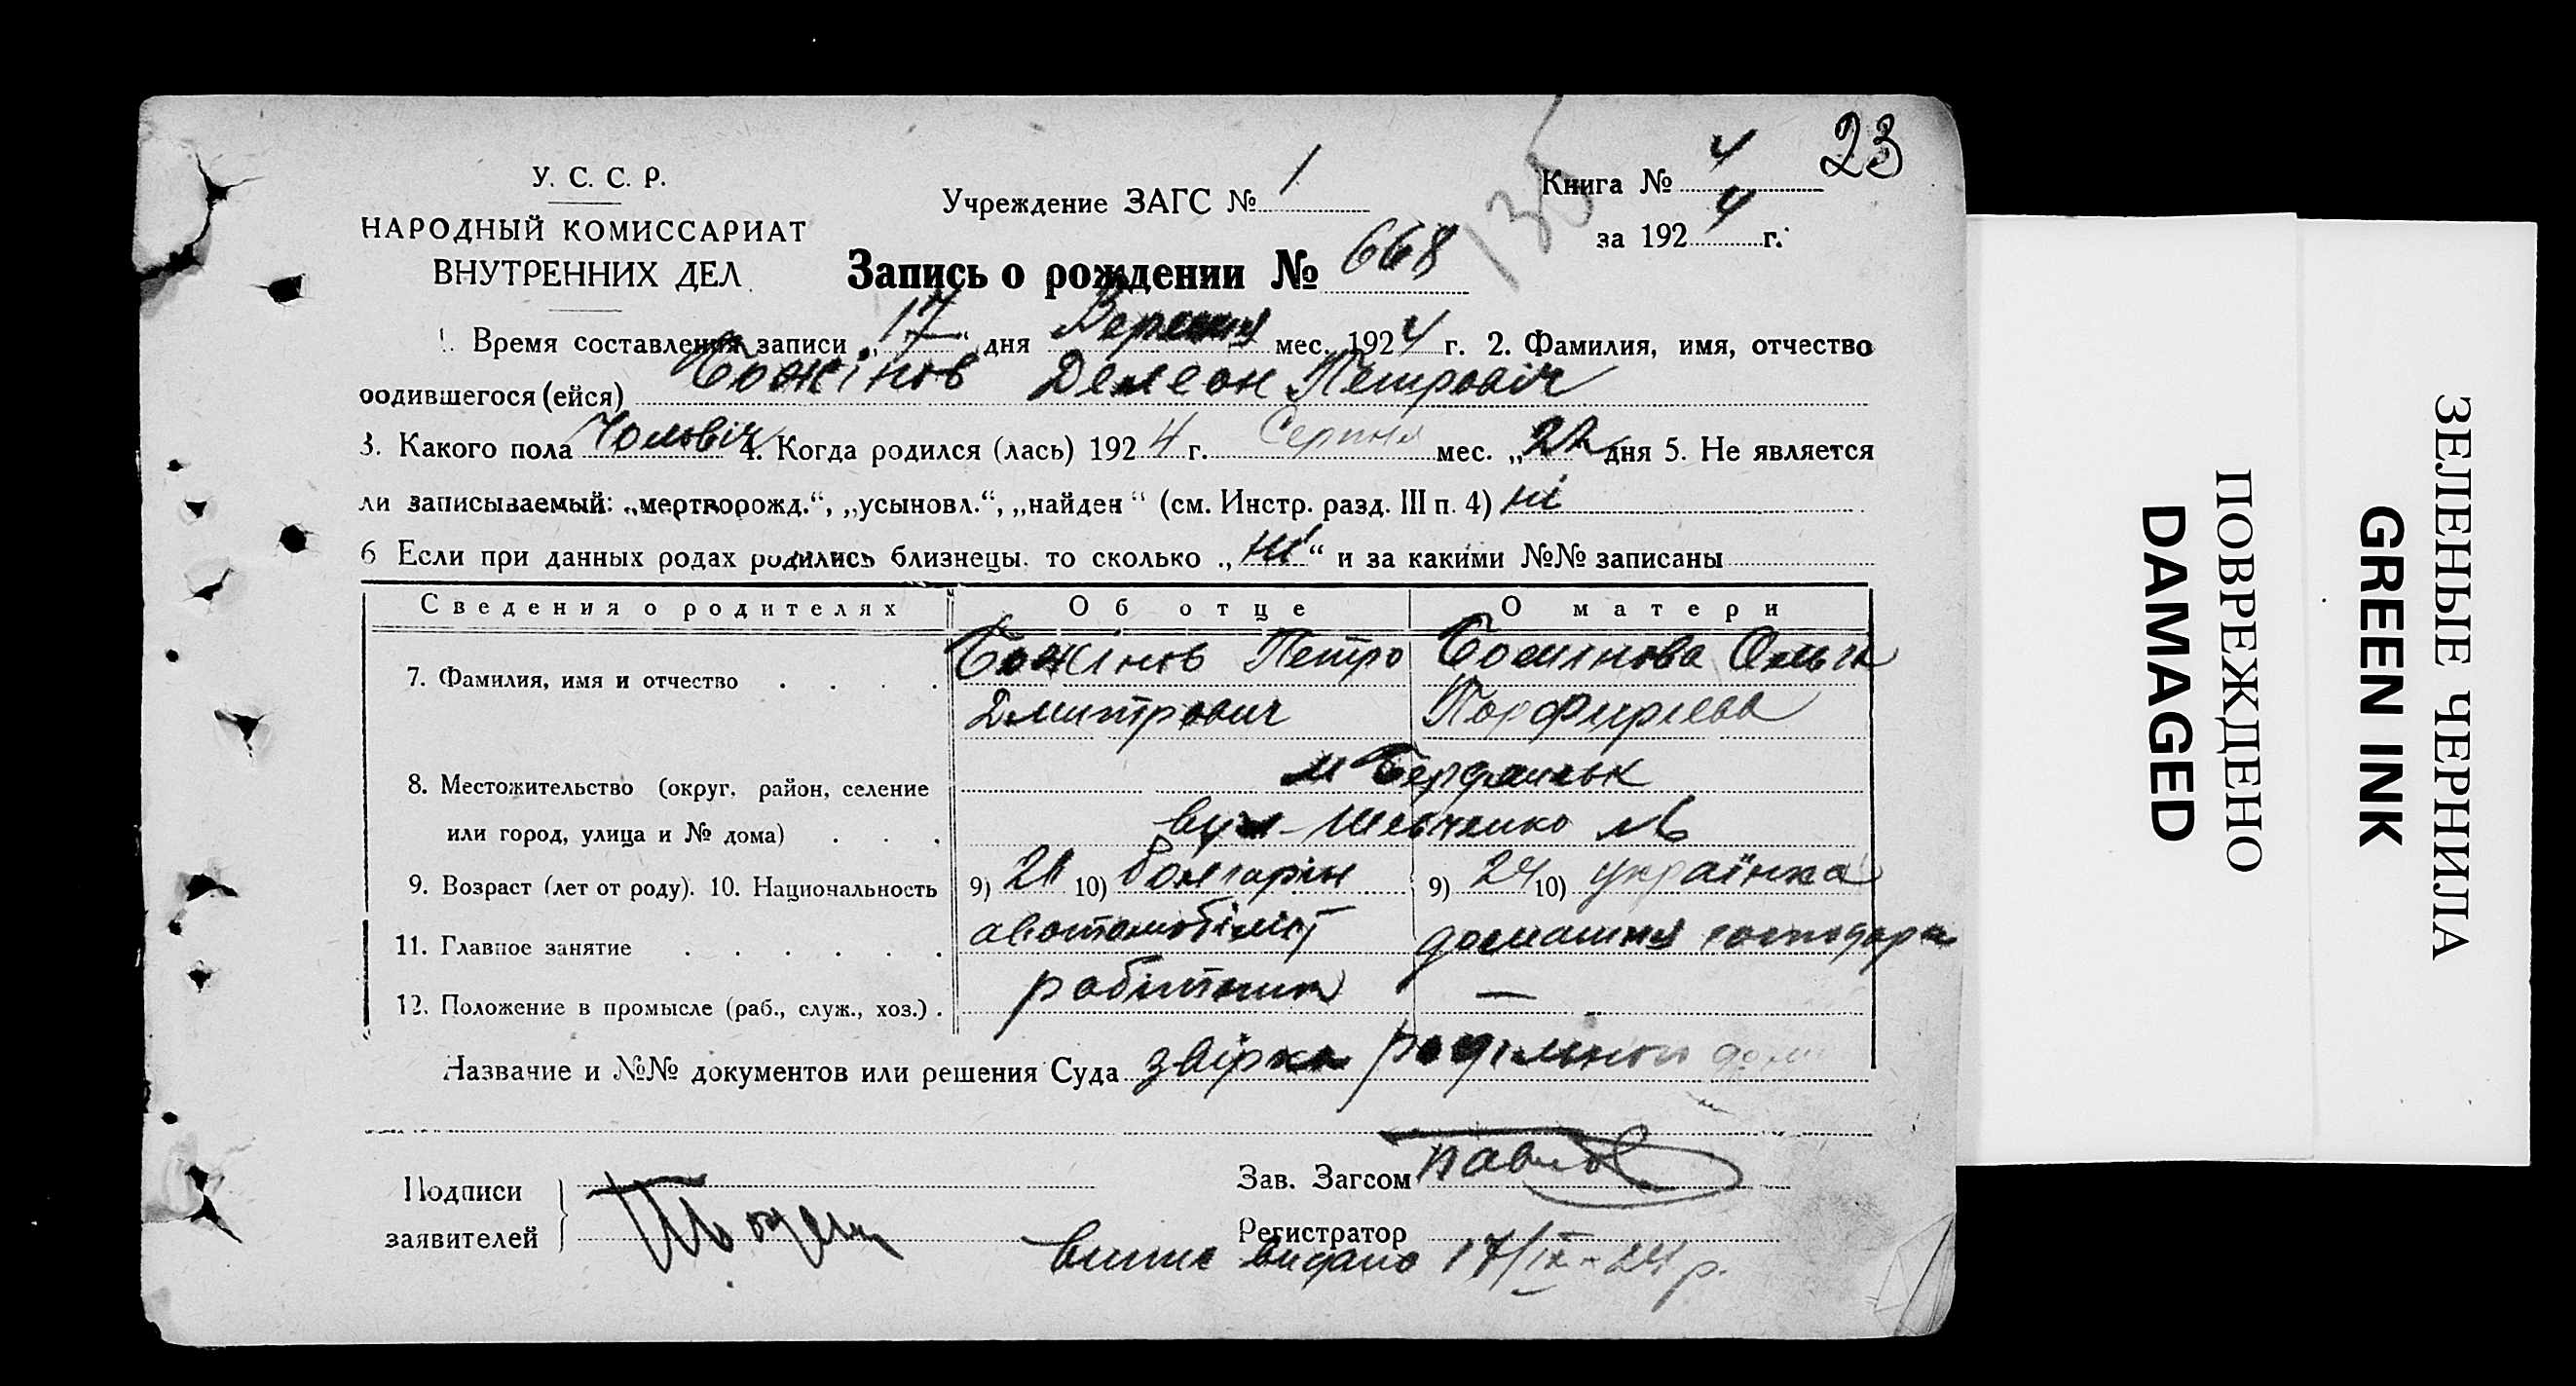 23
У. С. С. Р.
НАРОДНЫЙ КОМИССАРИАТ
ВНУТРЕННИХ ДЕЛ
Учреждение ЗАГС № 1
Книга № 4
за 1924 г.
135
Запись о рождении № 668
1. Время составления записи „17“ дня Вересня мес. 1924 г. 2. Фамилия, имя, отчество
родившегося (ейся) Божінов Делеон Петровіч
3. Какого пола Чоловіч 4. Когда родился (лась) 1924 г. Серпня мес. „22 дня 5. Не является
ли записываемый: „мертворожд.“, „усыновл.“, „найден“ (см. Инстр. разд. III п. 4) ні
6 Если при данных родах родились близнецы, то сколько „ні“ и за какими №№ записаны
Сведения о родителях Об отце О матери
7. Фамилия, имя и отчество Божінов Петро Божінова Ольга
Дмитрович Порфирієва
8. Местожительство (округ, район, селение м Бердянськ
или город, улица и № дома) вул. Шевченко №
9. Возраст (лет от роду). 10. Национальность 9) 10) болгарін 9) 24 10) українка
11. Главное занятие автомобіліст домашня господарк
12. Положение в промысле (раб., служ., хоз.) робітник —
Название и №№ документов или решения Суда звірка родільного дом
Подписи
заявителей
Зав. Загсом Павлов
Регистратор
випис видано 17/IX - 24 р.
ПОВРЕЖДЕНО
DAMAGED
ЗЕЛЕНЫЕ ЧЕРНИЛА
GREEN INK